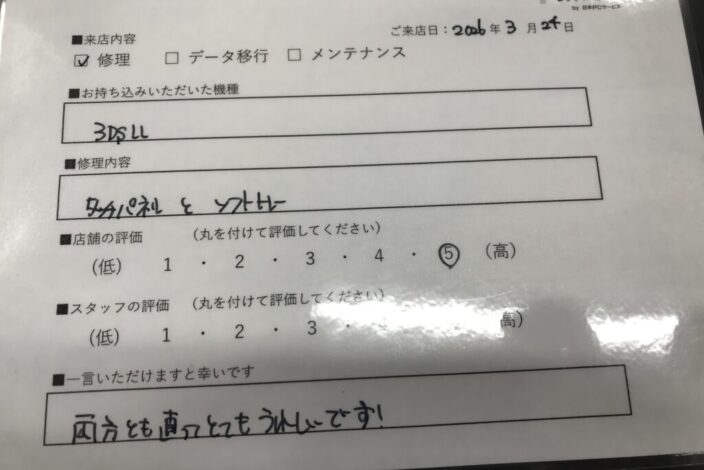 by 日本PCサービス
■来店内容
ご来店日：2026年3月24日
☑ 修理 □ データ移行 □ メンテナンス
■お持ち込みいただいた機種
3DSLL
■修理内容
タッチパネル と ソフトトレー
■店舗の評価 （丸を付けて評価してください）
（低） 1 ・ 2 ・ 3 ・ 4 ・ ⑤ （高）
■スタッフの評価 （丸を付けて評価してください）
（低） 1 ・ 2 ・ 3 ・ 高）
■一言いただけますと幸いです
両方とも直ってとてもうれしいです!